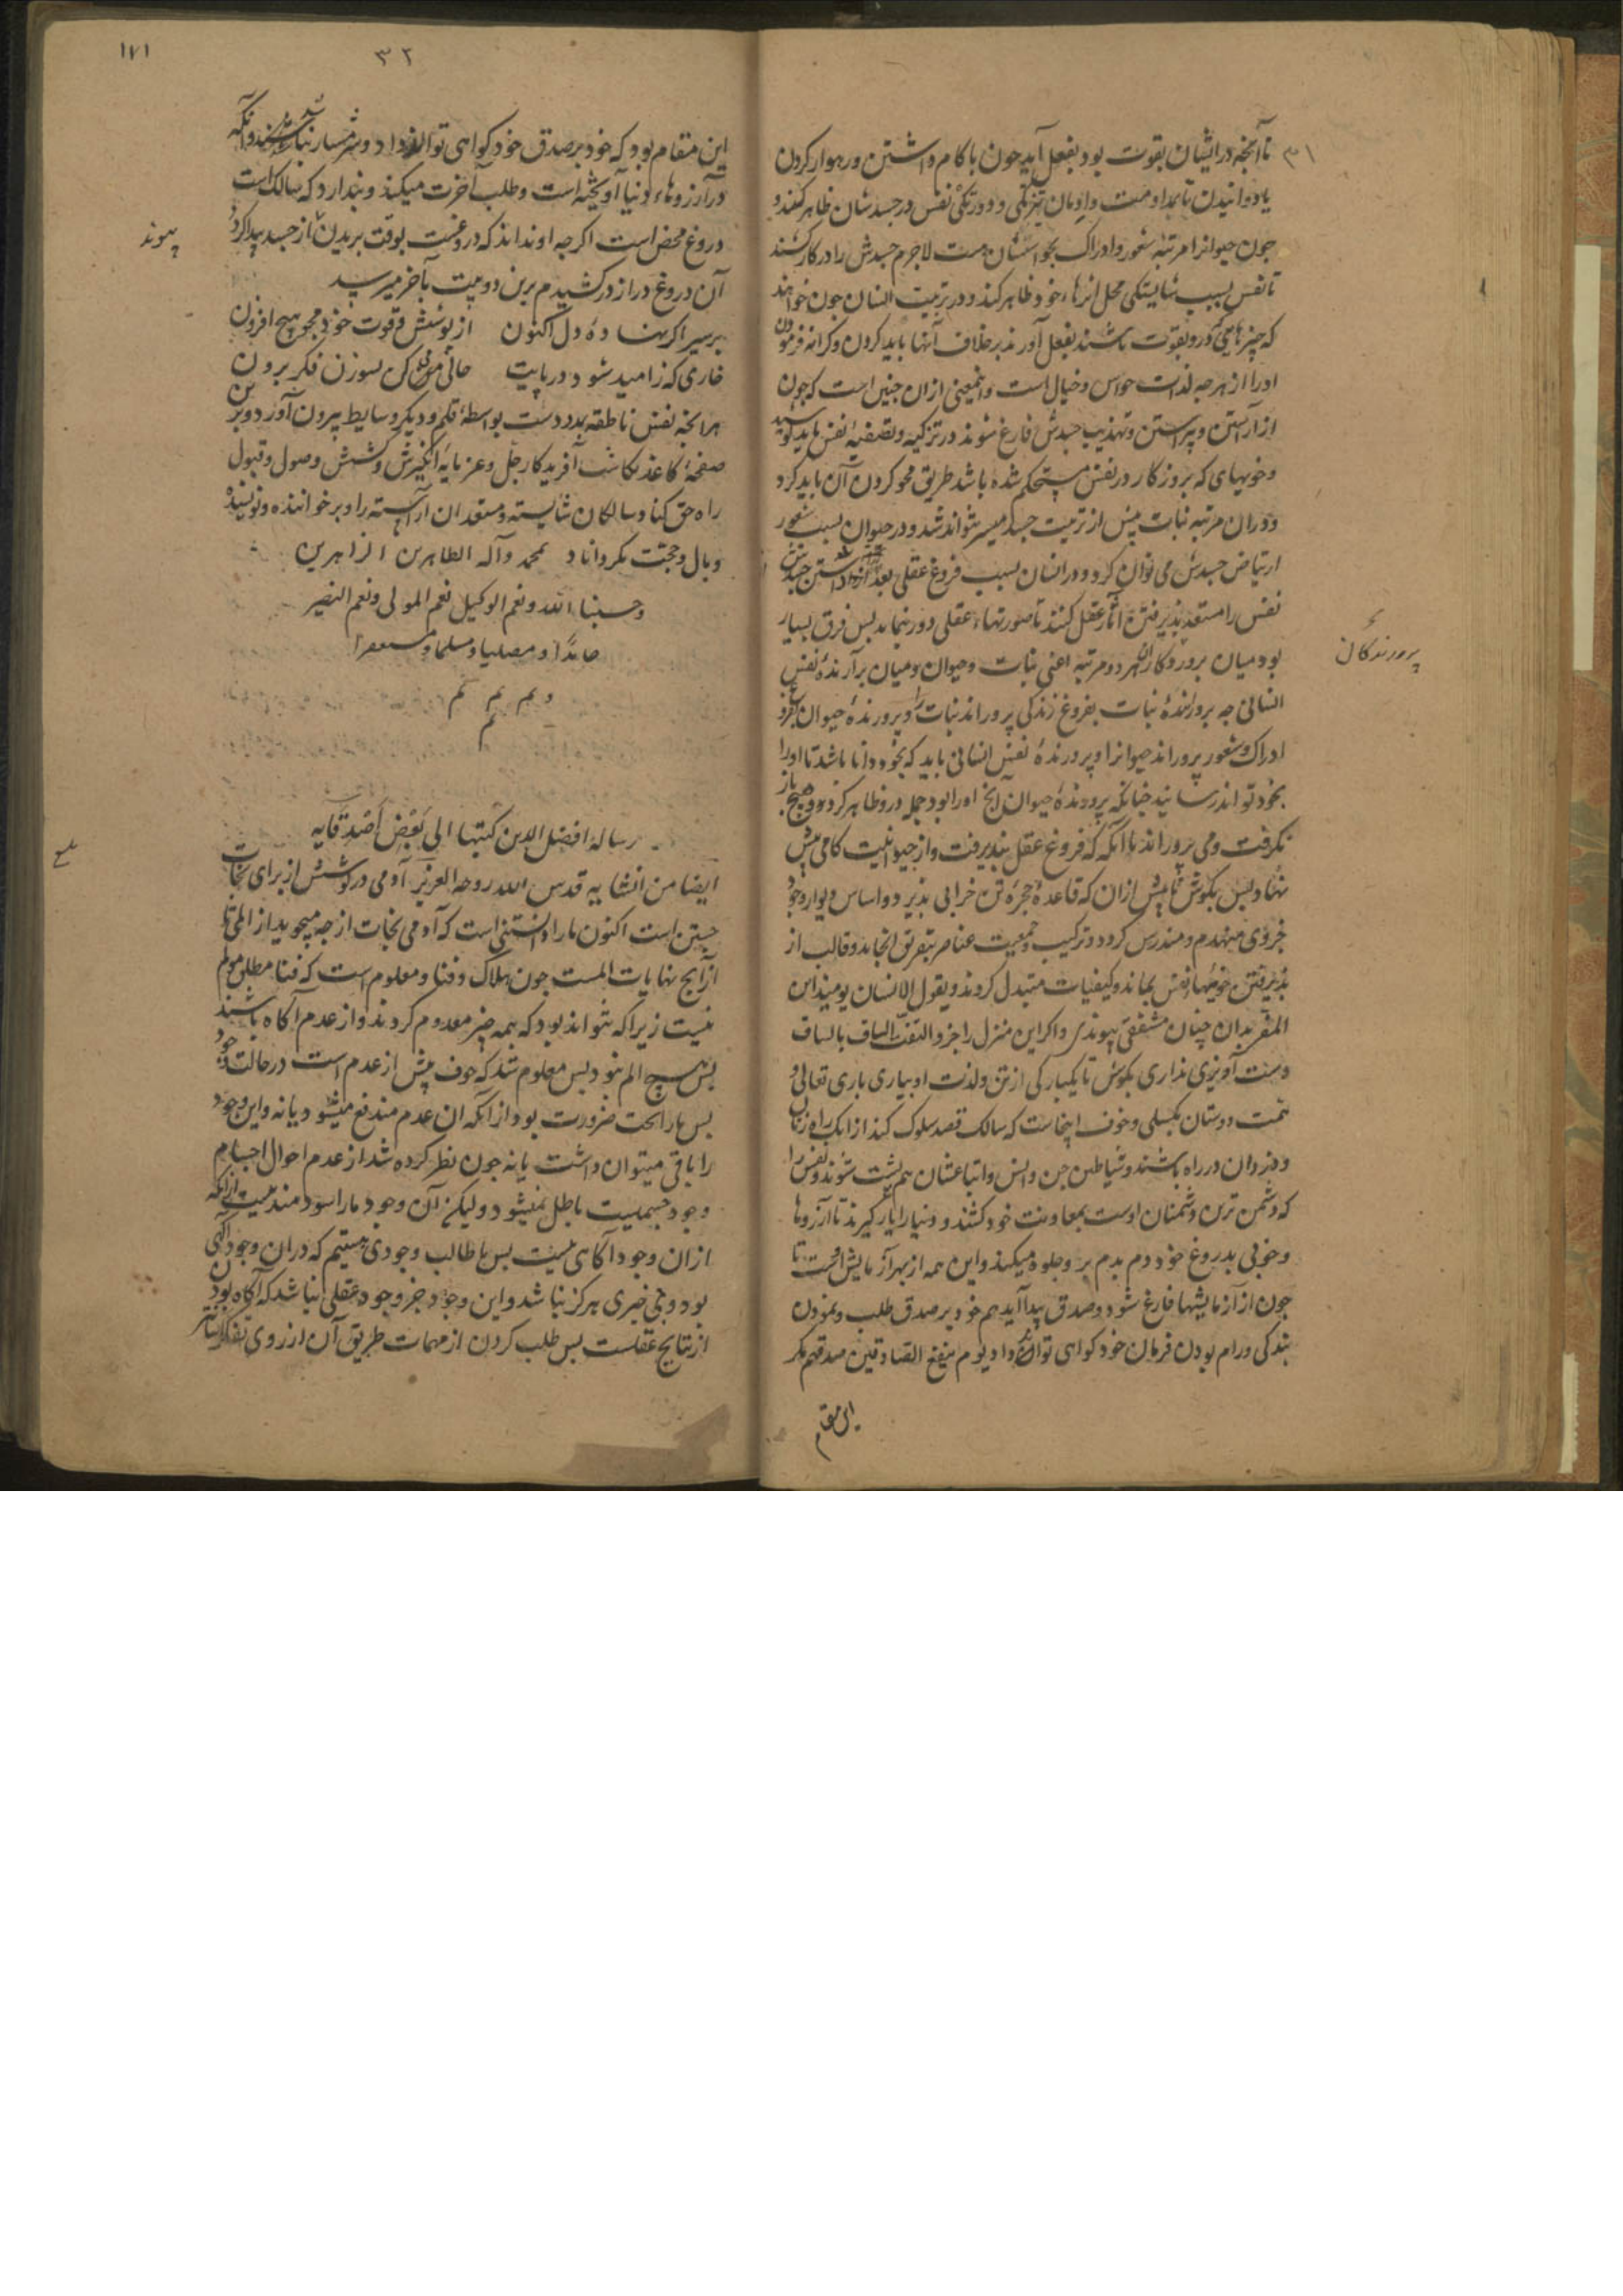 ۳۱
تا آنچه در ایشان بقوت بود بفعل آید جون با کام داشتن و رهوار کردن
یا دوانیدن تا بمداومت و ادمان تیزتکی و دورتکی نفس در جسدشان ظاهر کنند و
جون حیوانرا مرتبهٔ شعور و ادراک بحواسشان هست لاجرم جسدش را در کار کشند
تا نفس بسبب شایستکی محل اثرهاء خود ظاهر کند و در تربیت انسان جون خواهند
که چیزهایی که درو بقوت باشند بفعل آورند برخلاف آنها باید کردن و کرانه فرمودن
او را از هرجه لذت حواس و خیال است و اینمعنی از ان جنین است که جون
از آراستن و پیراستن و تهذیب جسدش فارغ شوند در تزکیه و تصفیهٔ نفس باید کوشید
و خویهای که بروزکار در نفس مستحکم شده باشد طریق محو کردن آن باید کرد
و در ان مرتبه نبات پیش از تربیت جسد میسر نتواند شد و در حیوان بسبب شعور
ارتیاض جسدش می توان کرد و در انسان بسبب فروغ عقلی بعد از داشتن جسدش
نفس را مستعد پذیرفتن آثار عقل کنند تا صورتهاء عقلی درو بنماید بس فرق بسیار
بود میان پروردکاران هر دو مرتبه اعنی نبات و حیوان و میان برآرندهٔ نفس
پرورندکان
انسانی جه پرورندهٔ نبات بفروغ زندکی پروراند نبات را و پرورندهٔ حیوان بفروغ
ادراک و شعور پروراند حیوانرا و پرورندهٔ نفس انسانی باید که بخود دانا باشد تا او را
بخود تواند رسانید جنانکه پرورندهٔ حیوان آنج او را بود جمله درو ظاهر کرد و هیچ باز
نکرفت و می پروراند تا آنکه که فروغ عقل بپذیرفت و از حیوانیت کامی پیش
نهاد بس بکوش تا پیش از ان که قاعدهٔ حجرهٔ تن خرابی پذیرد و اساس دیوار وجود
جزوی منهدم و مندرس کردد و ترکیب و جمعیت عناصر بتفرق انجامد و قالب از
پذیرفتن خویهاء نفس بماند و کیفیات متبدل کردند و یقول الانسان یومیذ این
المفر بدان چنان مشفقی پیوندی و اکر این منزل را جز و التفت الساق بالساق
دست آویزی نداری بکوش تا یکبارکی از تن و لذت او بیاری باری تعالی و
همت دوستان بکسلی و خوف اینجاست که سالک قصد سلوک کند از انک راه زنان
و دزدان در راه باشند و شیاطین جن و انس و اتباعشان هم پشت شوند و نفس را
که دشمن ترین دشمنان اوست بمعاونت خود کشند و دنیا را یار کیرند تا آرزوها
و خوبی بدروغ خود دم بدم برو جلوه میکند و این همه از بهر آزمایش اوست تا
جون از آزمایشها فارغ شود و صدق پیدا آید هم خود بر صدق طلب و نمودن
بندکی و رام بودن فرمان خود کواهی تواند داد یوم ینفع الصادقین صدقهم مکر
این مقام
۳۲
۱۷۱
این مقام بود که خود بر صدق خود کواهی تواند داد و شرمسار نباشد و آنکه
در آرزوهاء دنیا آویخته است و طلب آخرت میکند و پندارد که سالک است
دروغ محض است اکرجه او نداند که دروغست بوقت بریدن از جسد پیدا کردد
پیوند
آن دروغ دراز درکشیدم برین دو بیت بآخر میرسید
بر سیر اکر نهاده دل اکنون از پوشش و قوت خود مجو هیچ افزون
خاری که ز امید شود در پایت حالی کن بسوزن فکر برون
هرانچه نفس ناطقه بمدد دست بواسطهٔ قلم و دیکر وسایط بیرون آورد و برین
صفحهٔ کاغذ نکاشت آفریدکار جل و عز مایهٔ انکیزش و کشش وصول و قبول
راه حق کناد و سالکان شایسته و مستعدان آراسته را و بر خواننده و نویسنده
وبال و حجت مکرداناد بمحمد وآله الطاهرین الزاهرین
وحسبنا الله ونعم الوکیل نعم المولی ونعم النصیر
حامدا و مصلیا و مسلما و مستغفرا
تم تم تم
تم
رسالهٔ افضل الدین کتبها الی بَعْض أَصْدِقَایِه
ایضا من انشایه قدس الله روحه العزیز آدمی در کوشش از برای نجات
جستن است اکنون ما را دانستنی است که آدمی نجات از جه میجوید از الم یا
از آنج نهایات المست جون هلاک و فنا و معلوم است که فنا مطلق مولم
نیست زیرا که نتواند بود که همه چیز معدوم کردند و از عدم آکاه باشند
بس هیچ الم نبود بس معلوم شد که خوف پیش از عدم است در حالت وجود
بس ما را بحث ضرورت بود از آنکه ان عدم مندفع میشود یا نه و این وجود
را باقی میتوان داشت یا نه جون نظر کرده شد از عدم احوال اجسام
وجود جسمیت باطل نمیشود ولیکن آن وجود ما را سودمند نیست از آنکه
از ان وجود آکاهی نیست بس ما طالب وجودی هستیم که در ان وجود آکهی
بود و بی خبری هرکز نباشد و این وجود جز وجود عقلی نباشد که آکاه بودن
از نتایج عقلست بس طلب کردن از مهمات طریق آن از روی تفکر